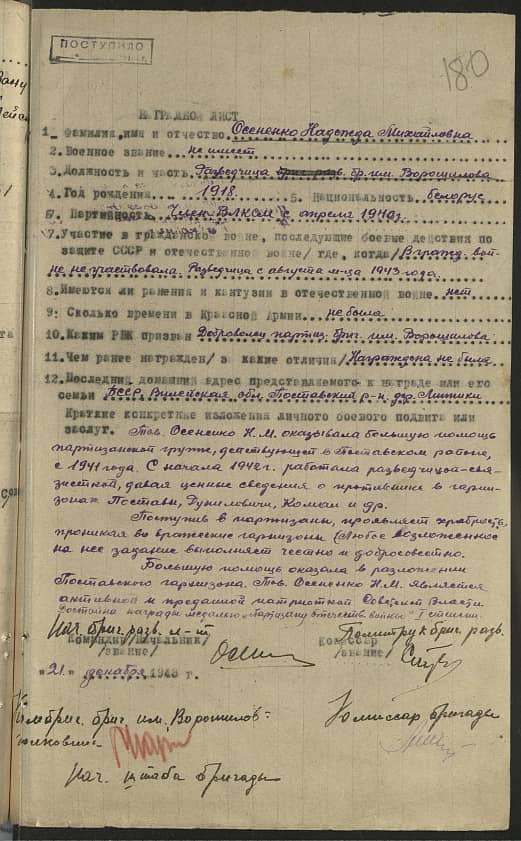 ПОСТУПИЛО
180
НАГРАДНОЙ ЛИСТ
1. Фамилия, имя и отчество Осененко Надежда Михайловна
2. Военное звание не имеет
3. Должность и часть Разведчица бр. им. Ворошилова
4. Год рождения 1918. 5. Национальность белорус
6. Партийность Член ВЛКСМ с апреля 1940 г.
7. Участие в гражданской войне, последующие боевые действия по
защите СССР и отечественной войне/ где, когда/ В гражд. вой-
не не участвовала. Разведчица с августа м-ца 1943 года.
8. Имеются ли ранения и кантузии в отечественной войне нет
9. Сколько времени в Красной Армии не была
10. Каким РВК призван Доброволец партиз. бриг. им. Ворошилова
11. Чем ранее награжден/за какие отличия/ Награждена не была
12. Последний домашний адрес представляемого к награде или его
семьи БССР, Вилейская обл. Поставский р-н. дер.
Краткие конкретные изложения личного боевого подвига или
заслуг. Тов. Осененко Н.М. оказывала большую помощь
партизанской группе, действующей в Поставском районе,
с 1941 года. С начала 1942 г. работала разведчицей-свя-
зисткой, давая ценные сведения о противнике в гарни-
зонах Поставы, Дуниловичи, Комаи и др.
Поступив в партизаны, проявляет храбрость,
проникая во вражеские гарнизоны. Любое возложенное
на нее задание выполняет честно и добросовестно.
Большую помощь оказала в разложении
Поставского гарнизона. Тов. Осененко Н.М. является
активной и преданной патриоткой Советской Власти.
Достойна награды медалью „Партизану Отечеств. войны" I степени.
Нач. бриг. разв. Политрук бриг. разв.
Командир/начальник/ Комиссар
/звание/ /звание/
"21" декабря 1943 г.
Комбриг. бриг. им. Ворошилов- Комиссар бригады
Нач. штаба бригады